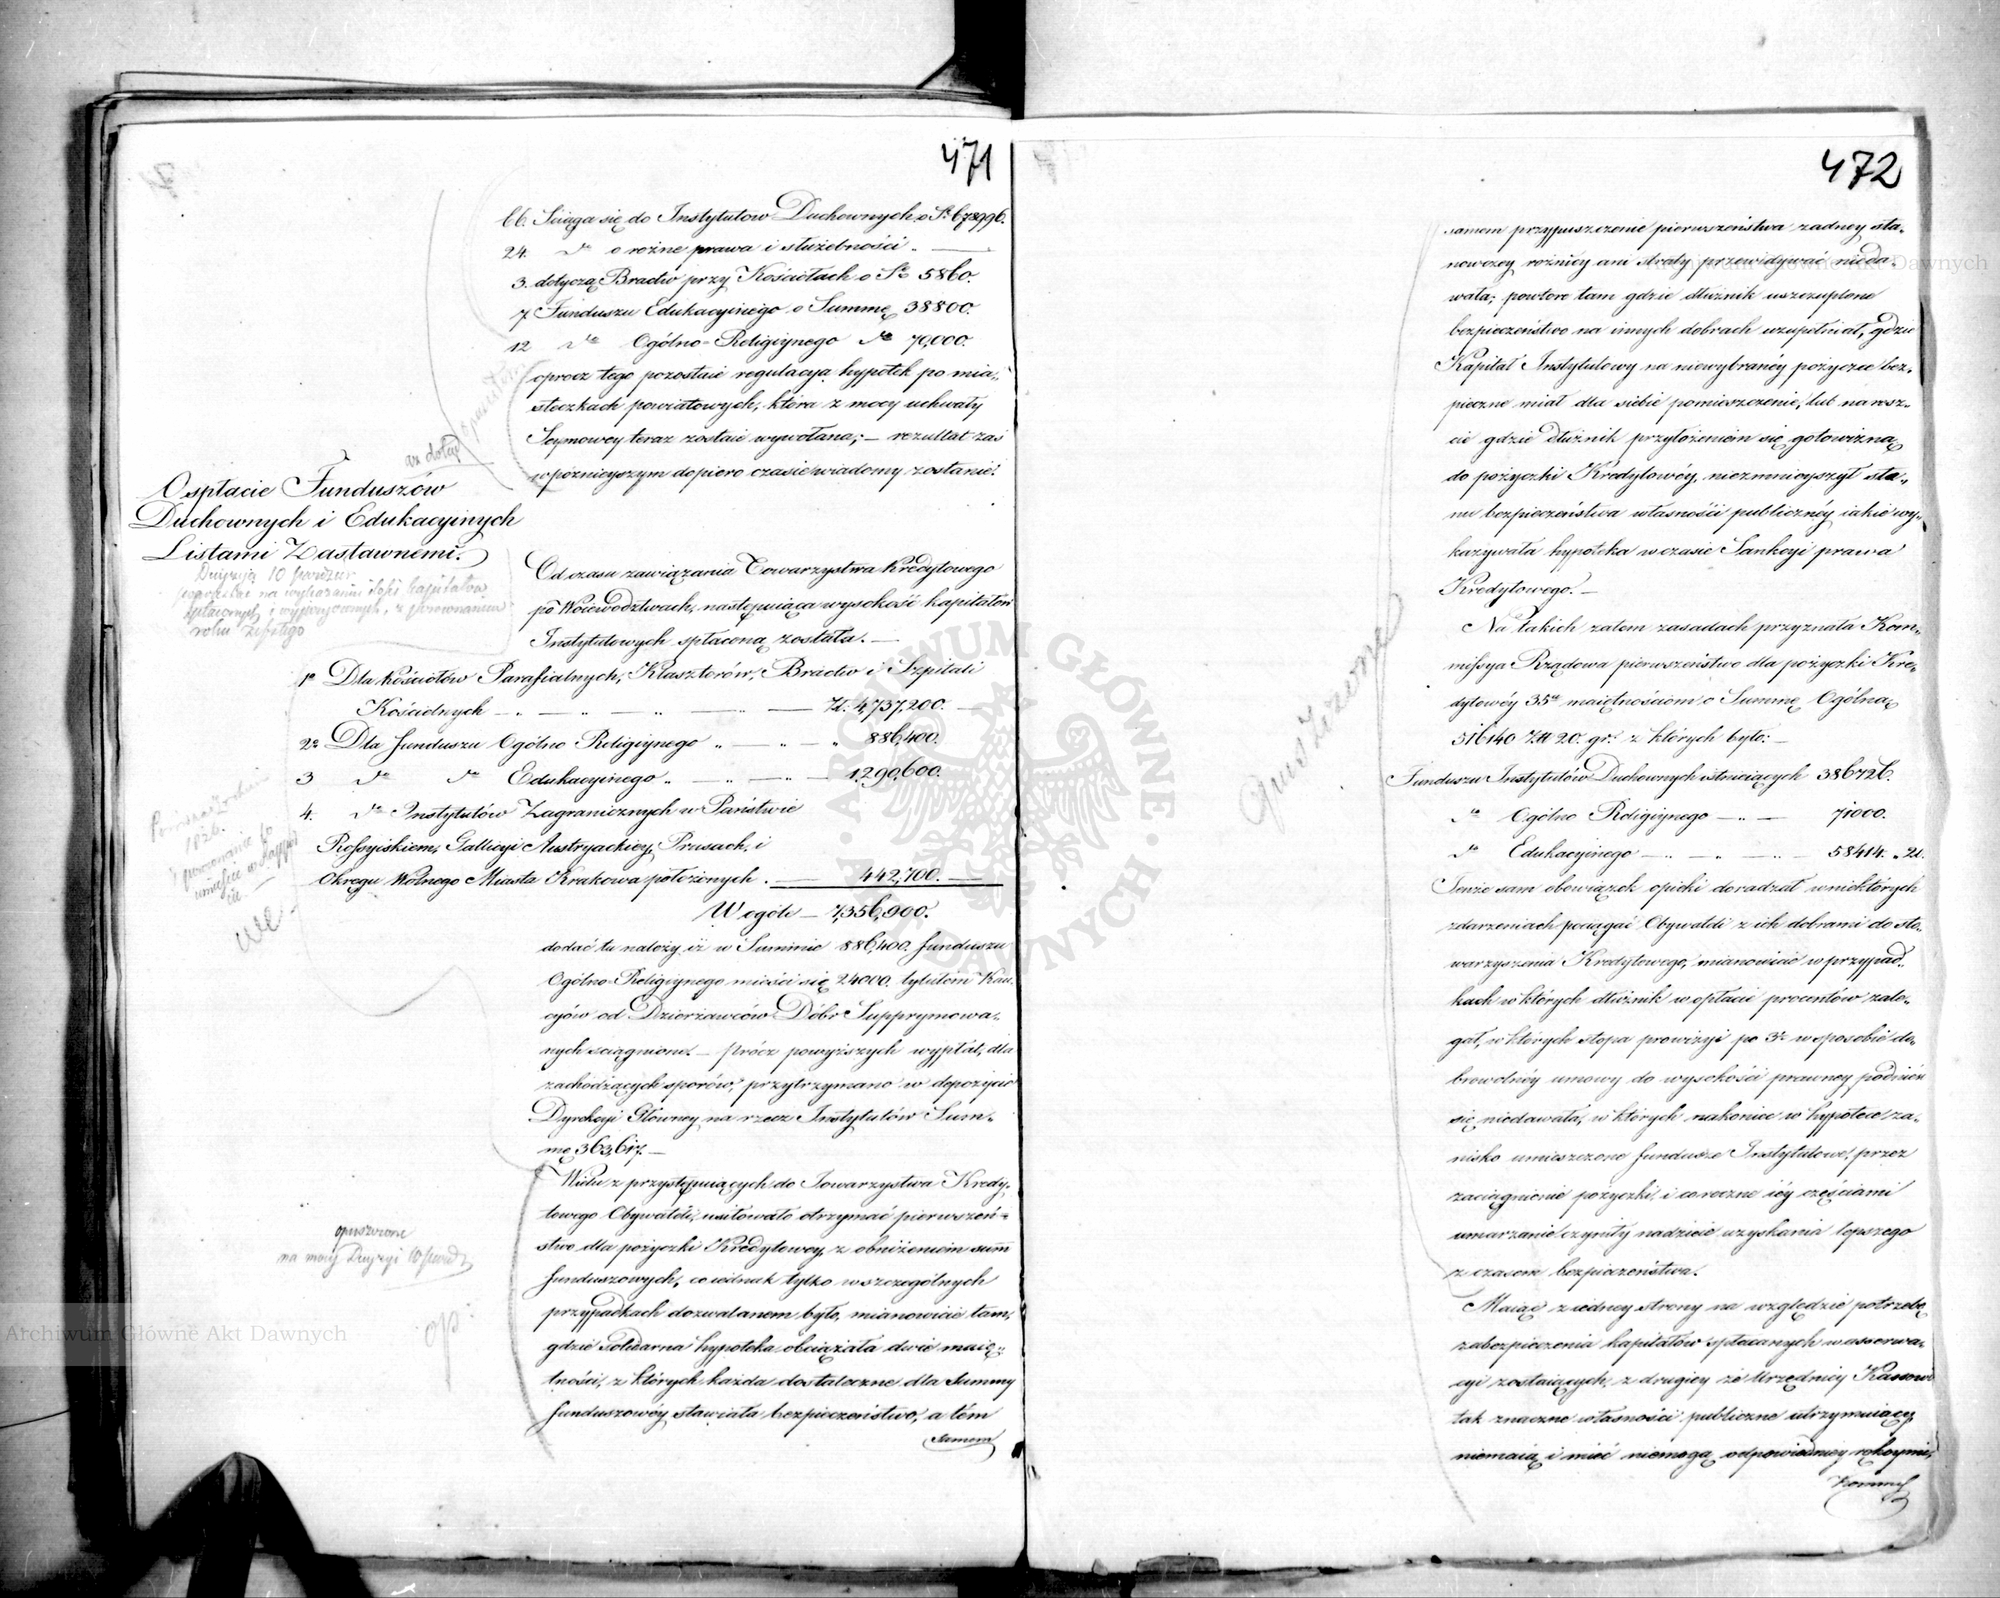 471
66. Sciąga się do Instytutow Duchownych o Sę 678996.
24. dto o rożne prawa i służebności
3. dotyczą Bractw przy Kościołach o Sę 5860.
7. Funduszu Edukacyinego o Summę 38800.
12 dto Ogólno-Religiynego dto 70,000.
oprocz tego pozostaie regulacya hypotek po mia-
steczkach powiatowych, która z mocy uchwały
Seymowey teraz zostaie wywołana; — rezultat zaś
w poznieyszym dopiero czasie wiadomy zostanie.
az dotąd
O spłacie Funduszów
Duchownych i Edukacyinych
Listami Zastawnemi.
Od czasu zawiązania Towarzystwa Kredytowego
po Woiewodztwach, następuiąca wysokość kapitałow
Instytutowych spłaconą została. —
1o Dla kościołów Parafialnych, Klasztorów, Bractw i Szpitali
Kościelnych — Zł. 4,737,200. —
2o Dla funduszu Ogólno Religiynego 886,400.
3 dto dto Edukacyinego 1,290,600.
4. dto Instytutów Zagranicznych w Państwie
Rossyiskiem, Gallicyi Austryackiey, Prusach, i
Okręgu Wolnego Miasta Krakowa położonych. 442,700.
W ogóle — 7,356,900.
dodać tu należy iż w Summie 886,400. funduszu
Ogólno-Religiynego mieści się 24000. tytułem Kau-
cyów od Dzierżawców Dóbr Supprymowa-
nych sciągnione. — prócz powyższych wypłat, dla
zachodzących sporów, przytrzymano w depozycie
Dyrekcyi Główney na rzecz Instytutów Sum-
mę 363,617. —
Wielu z przystępuiących do Towarzystwa Kredy-
towego Obywateli, usiłowało otrzymać pierwszeń-
stwo dla pożyczki Kredytowey, z obniżeniem summ
funduszowych, co iednak tylko w szczególnych
przypadkach dozwalanem było, mianowicie tam,
gdzie solidarna hypoteka obciążała dwie maię-
tności, z których każda dostateczne dla Summy
funduszowéy stawiała bezpieczeństwo, a tém
samem
opuszczone
na mocy Decyzyi 10
op
472
samem przypuszczenie pierwszeństwa żadney sta-
nowczey rożnicy ani straty przewidywać nieda-
wała; powtore tam gdzie dłużnik uszczuplone
bezpieczeństwo na innych dobrach uzupełniał, gdzie
Kapitał Instytutowy na niewybranéy pożyczce bez-
pieczne miał dla siebie pomieszczenie, lub na resz-
cie gdzie dłużnik przyłożeniem się gotowizną
do pożyczki Kredytowéy, niezmnieyszył sta-
nu bezpieczeństwa własności publicznéy iakie wy-
kazywała hypoteka w czasie Sankcyi prawa
Kredytowego. —
Na takich zatem zasadach przyznała Kom-
missya Rządowa pierwszeństwo dla pożyczki Kre-
dytowéy 35u maiętnościom o Summę Ogólną
516140 Złł 20. gr. z których było: —
Funduszu Instytutów Duchownych istnieiących 386726.
dto Ogólno Religiynego 71000.
dto Edukacyinego 58414. „ 20.
Tenże sam obowiązek opieki doradzał w niektórych
zdarzeniach pociągać Obywateli z ich dobrami do sto-
warzyszenia Kredytowego, mianowicie w przypad-
kach w których dłużnik w opłacie procentów zale-
gał, w których stopa prowizyi po 3% w sposobie do-
browolnéy umowy do wysokości prawney podnieść
się niedawała, w których nakoniec w hypotece za-
nisko umieszczone fundusze Instytutowe, przez
zaciągnienie pożyczki, i coroczne iéy częściami
umarzanie czyniły nadzieię uzyskania lepszego
z czasem bezpieczeństwa.
Maiąc z iedney strony na względzie potrzebę
zabezpieczenia kapitałów spłacanych w asserwa-
cyi zostaiących, z drugiey że Urzędnicy Kassowi
tak znaczne własności publiczne utrzymuiący,
niemaią i mieć niemogą odpowiedniey rękoymi,
opuszczone